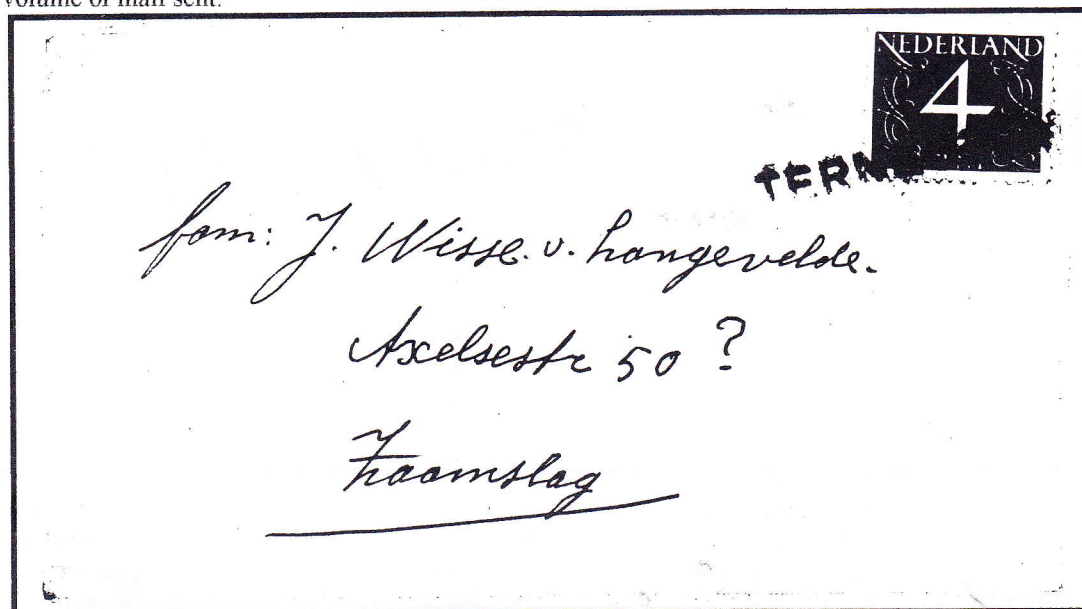 volume of mail sent.
NEDERLAND
4
TERN
fam: J. Wisse. v. Langevelde.
Axelsestr 50 ?
Zaamslag